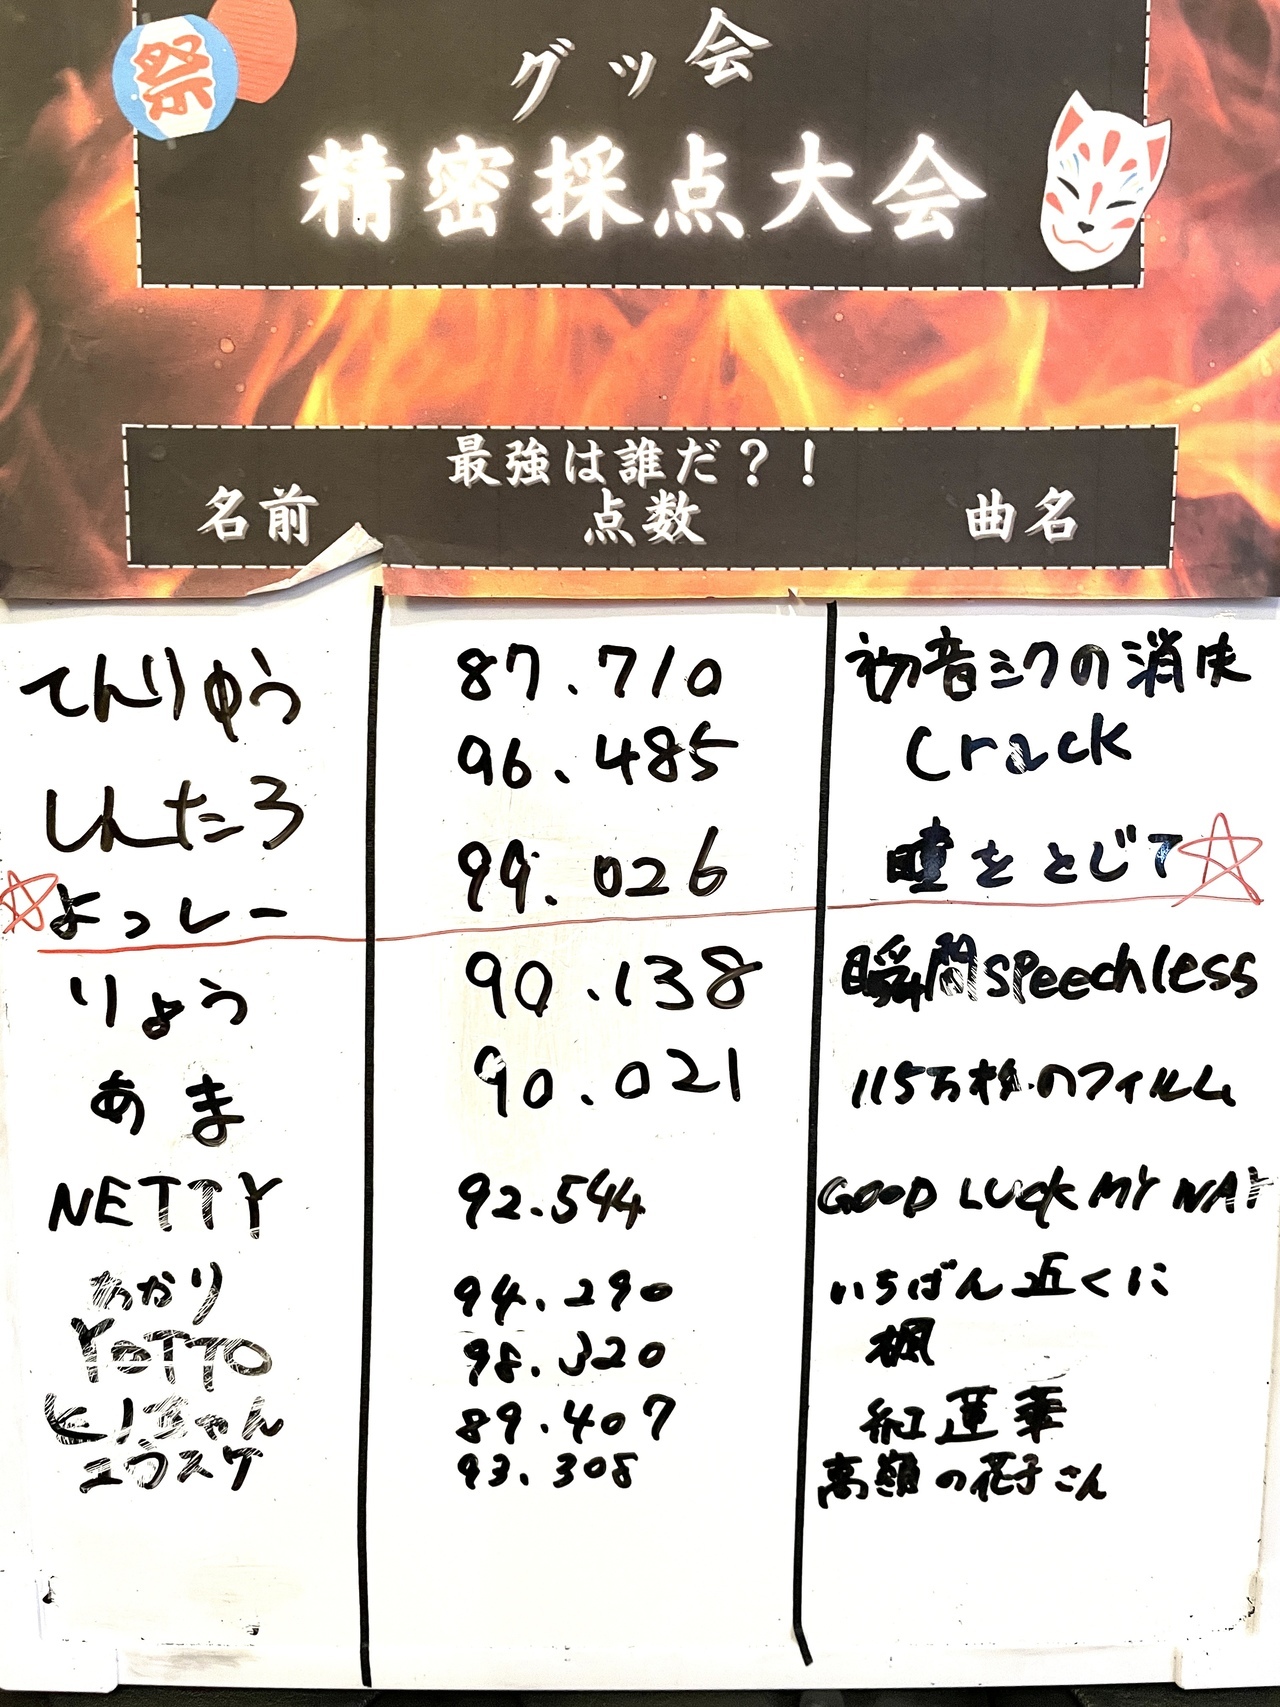 祭
グッ会
精密採点大会
最強は誰だ？！
名前 点数 曲名
てんりゅう 87.710 初音ミクの消失
しんたろ 96.485 Crack
よっしー 99.026 瞳をとじて
りょう 90.138 瞬間speechless
あま 90.021 115万枚のフィルム
NETTY 92.544 GOOD LUCK MY WAY
あかり 94.290 いちばん近くに
YOTTO 98.320 楓
ヒノちゃん 89.407 紅蓮華
ユウスケ 93.308 高嶺の花子さん